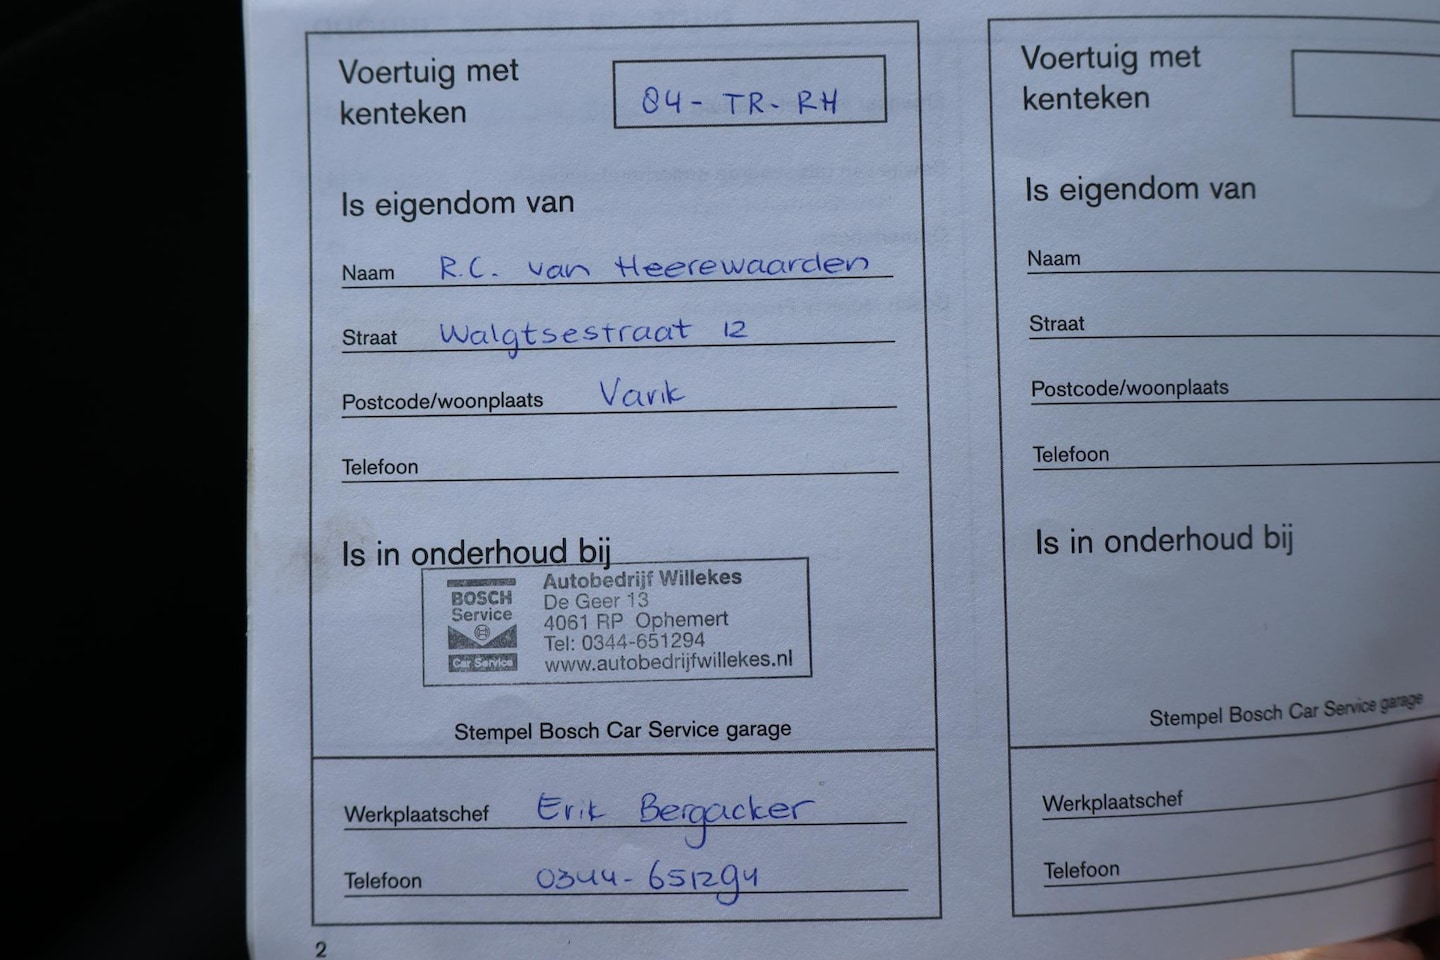 Voertuig met
kenteken
84-TR-RH
Is eigendom van
Naam R.C. van Heerewaarden
Straat Walgtsestraat 12
Postcode/woonplaats Varik
Telefoon
Is in onderhoud bij
BOSCH
Service
Car Service
Autobedrijf Willekes
De Geer 13
4061 RP Ophemert
Tel: 0344-651294
www.autobedrijfwillekes.nl
Stempel Bosch Car Service garage
Werkplaatschef Erik Bergacker
Telefoon 0344-651294
2
Voertuig met
kenteken
Is eigendom van
Naam
Straat
Postcode/woonplaats
Telefoon
Is in onderhoud bij
Stempel Bosch Car Service garage
Werkplaatschef
Telefoon